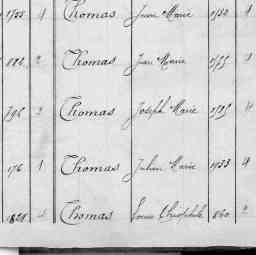 1755 1 Thomas Jean Marie 1752 4
186 2 Thomas Jean Marie 1755 4
796 2 Thomas Joseph Marie 1785 4
176 1 Thomas Julien Marie 1753 4
1828 Thomas Louis Théophile 1860 2